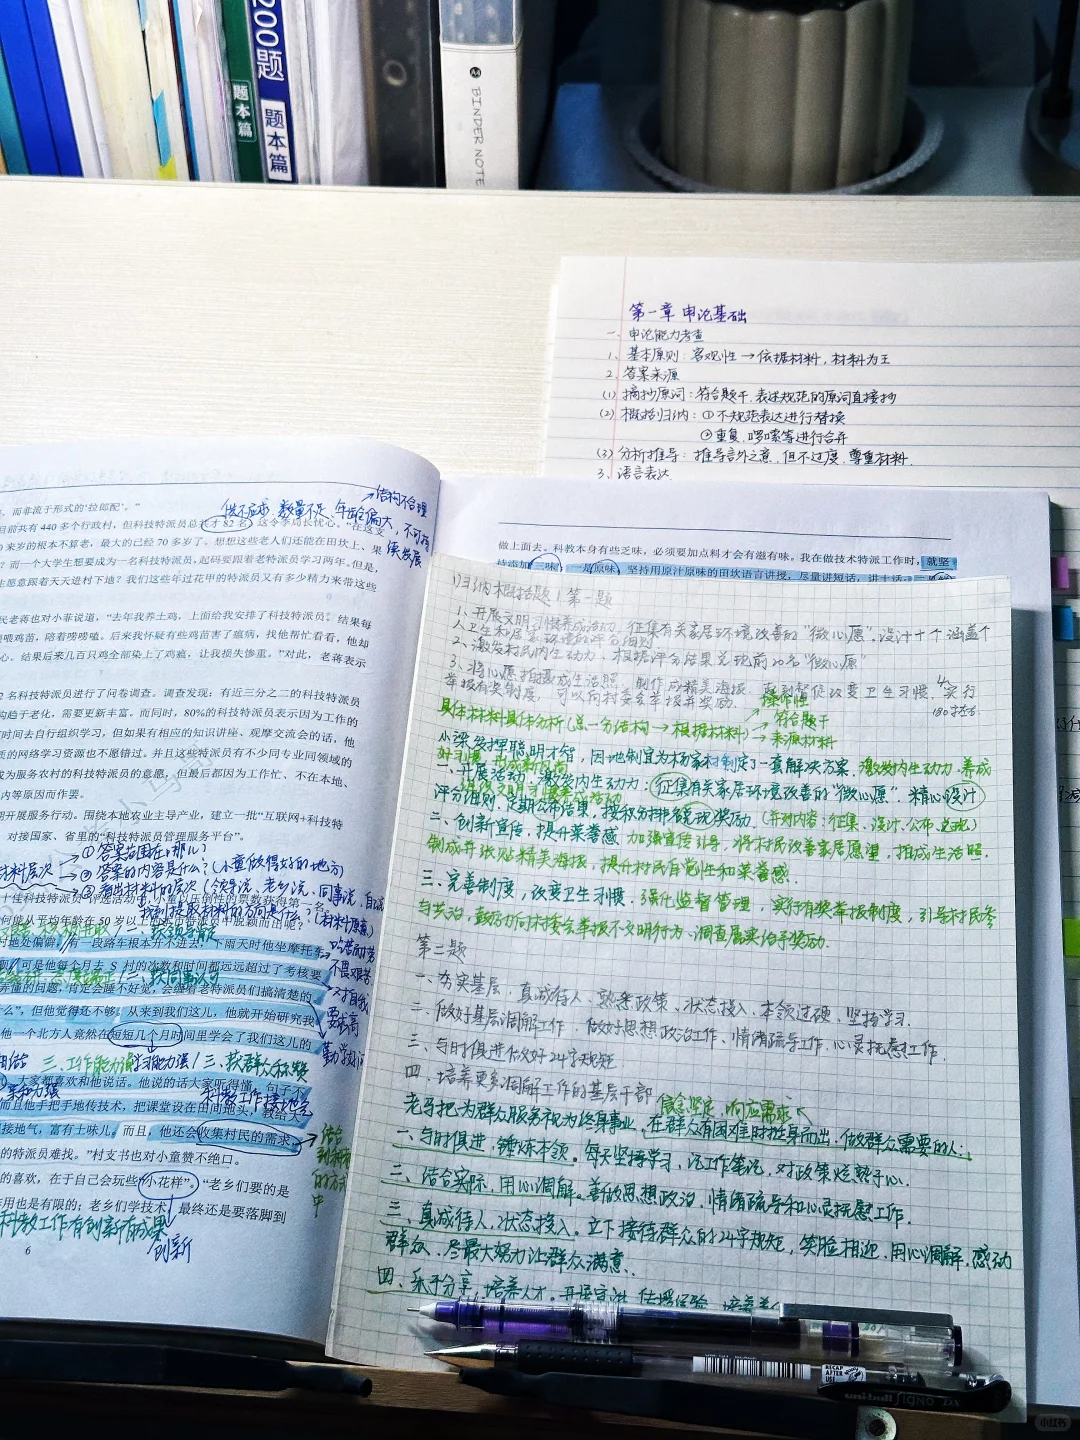 200题
题本篇
题本篇
BINDER NOTE
第一章 申论基础
一、申论能力考查
1、基本原则：客观性→依据材料，材料为王
2、答案来源
(1) 摘抄原词：符合题干，表述规范的原词直接抄
(2) 概括归纳：①不规范表达进行替换
②重复、啰嗦等进行合并
(3) 分析推导：推导言外之意，但不过度，尊重材料.
3、语言表达
，而非流于形式的‘拉郎配’。”
→结构不合理
供不应求，数量不足，年龄偏大，不可持续发展
目前共有 440 多个行政村，但科技特派员总共才 82 名，这令李局长忧心。“在这支
来岁的根本不算老，最大的已经 70 多岁了。想想这些老人们还能在田坎上、果
？而一个大学生想要成为一名科技特派员，起码要跟着老特派员学习两年。但是，
愿意跟着天天进村下地？我们这些年过花甲的特派员又有多少精力来带这些
民老蒋也对小菲说道，“去年我养土鸡，上面给我安排了科技特派员。结果每
喂鸡苗，陪着唠唠嗑。后来我怀疑有些鸡苗害了瘟病，找他帮忙看看，他却
心。结果后来几百只鸡全部染上了鸡瘟，让我损失惨重。”对此，老蒋表示
2 名科技特派员进行了问卷调查。调查发现：有近三分之二的科技特派员
构趋于老化，需要更新丰富。而同时，80%的科技特派员表示因为工作的
时间去自行组织学习，但如果有相应的知识讲座、观摩交流会的话，他
质的网络学习资源也不愿错过。并且这些特派员有不少同专业同领域的
成为服务农村的科技特派员的意愿，但最后都因为工作忙、不在本地、
内等原因而作罢。
期开展服务行动。围绕本地农业主导产业，建立一批“互联网+科技特
对接国家、省里的“科技特派员管理服务平台”。
材料层次→①答案范围在哪儿？
→②答案的内容是什么？(小童做得好的地方)
→③翻出材料的层次(领导说、老乡说、同事说，自
找到提取材料的方向是什么？(材料原意)
十佳科技特派员”评选活动中，小童以压倒性的票数获得第一名。
何能从平均年龄在 50 岁以上的基层特派员中脱颖而出呢？
村地处偏僻，有一段路车根本开不进去，下雨天时他坐摩托车
可是他每个月去 S 村的次数和时间都远远超过了考核要
弄懂的问题，肯定会睡不好觉，会缠着老特派员们搞清楚的
么”，但他觉得还不够，从来到我们这儿，他就开始研究我
他一个北方人竟然在短短几个月时间里学会了我们这儿的
吃苦耐劳
不畏艰苦
对自我
要求高
勤学好问
三、工作能力强 学习能力强/三、获群众称赞
大家都喜欢和他说话。他说的话大家听得懂，句子不
亲和力强
科教工作接地气
而且他手把手地传技术，把课堂设在田间地头，教给大
接地气，富有土味儿。而且，他还会收集村民的需求，
的特派员难找。”村支书也对小童赞不绝口。
的喜欢，在于自己会玩些“小花样”。“老乡们要的是
作用也是有限的；老乡们学技术，最终还是要落脚到
科教工作有创新有成果
创新
6
做上面去。科教本身有些乏味，必须要加点料才会有滋有味。我在做技术特派工作时，就坚
持添加“三味”，一是原味。坚持用原汁原味的田坎语言讲授，尽量讲短话、讲土话
(1)归纳概括题 1 第一题
1、开展文明习惯养成活动，征集有关家居环境改善的“微心愿”，设计十个涵盖个
人卫生和居家环境的评分细则
2、激发村民内生动力，根据评分结果兑现前20名“微心愿”
3、将心愿拍摄成生活照，制作成精美海报，
4、实行
举报有奖制度，可以向村委会举报并奖励.
具体材料具体分析(总一分结构→根据材料)
→操作性
→符合题干
→来源材料
小梁发挥聪明才智，因地制宜为杨家村制定了一套解决方案，激发内生动力，养成
好习惯，形成新风尚
一、开展活动，激发内生动力：征集有关家居环境改善的“微心愿”，精心设计
评分细则，定期公布结果，按积分排名兑现奖励 (并列内容：征集、设计、公布、兑现)
二、创新宣传，提升荣誉感 加强宣传引导，将村民改善家居愿望，拍成生活照，
制成并张贴精美海报，提升村民自觉性和荣誉感.
三、完善制度，改变卫生习惯，强化监督管理，实行有奖举报制度，引导村民参
与共治，鼓励向村委会举报不文明行为，调查属实给予奖励.
第二题
一、夯实基层，真诚待人、熟悉政策、状态投入、本领过硬、坚持学习.
二、做好基层调解工作，做好思想政治工作、情绪疏导工作、心灵抚慰工作.
三、与时俱进做好24字规矩
四、培养更多调解工作的基层干部
信念坚定，响应需求
老马把为群众服务视为终身事业，在群众有困难时挺身而出，做群众需要的人：
一、与时俱进，锤炼本领。每天坚持学习，记工作笔记，对政策烂熟于心.
二、结合实际，用心调解。善做思想政治，情绪疏导和心灵抚慰工作.
三、真诚待人，状态投入。立下接待群众的24字规矩，笑脸相迎，用心调解，感动
群众，尽最大努力让群众满意.
四、乐于分享，培养人才。
RECAP AFTER USE
uni-ball SIGNO DX
小红书